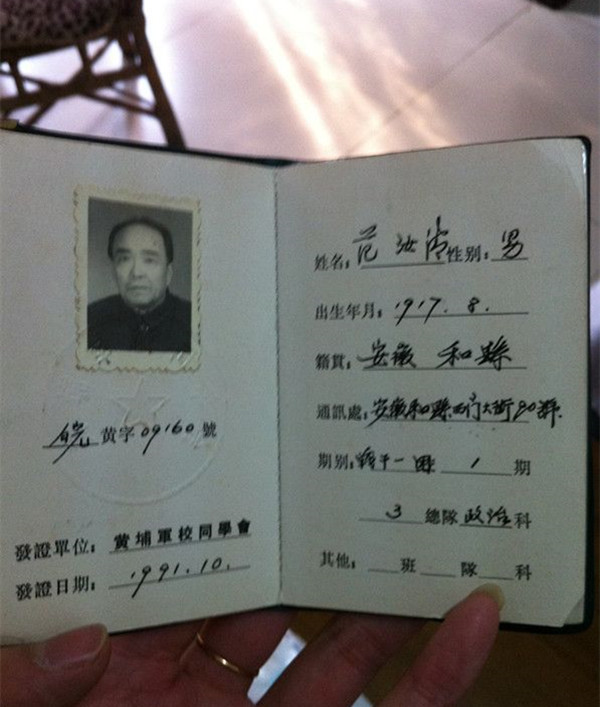 皖 黄字 09160 號
發證單位：黄埔軍校同學會
發證日期：1991.10.
姓名：范汝清 性别：男
出生年月：1917.8.
籍貫：安徽 和縣
通訊處：安徽和縣西门大街80號
期别： 1 期
3 總隊 政治科
其他： 班 隊 科